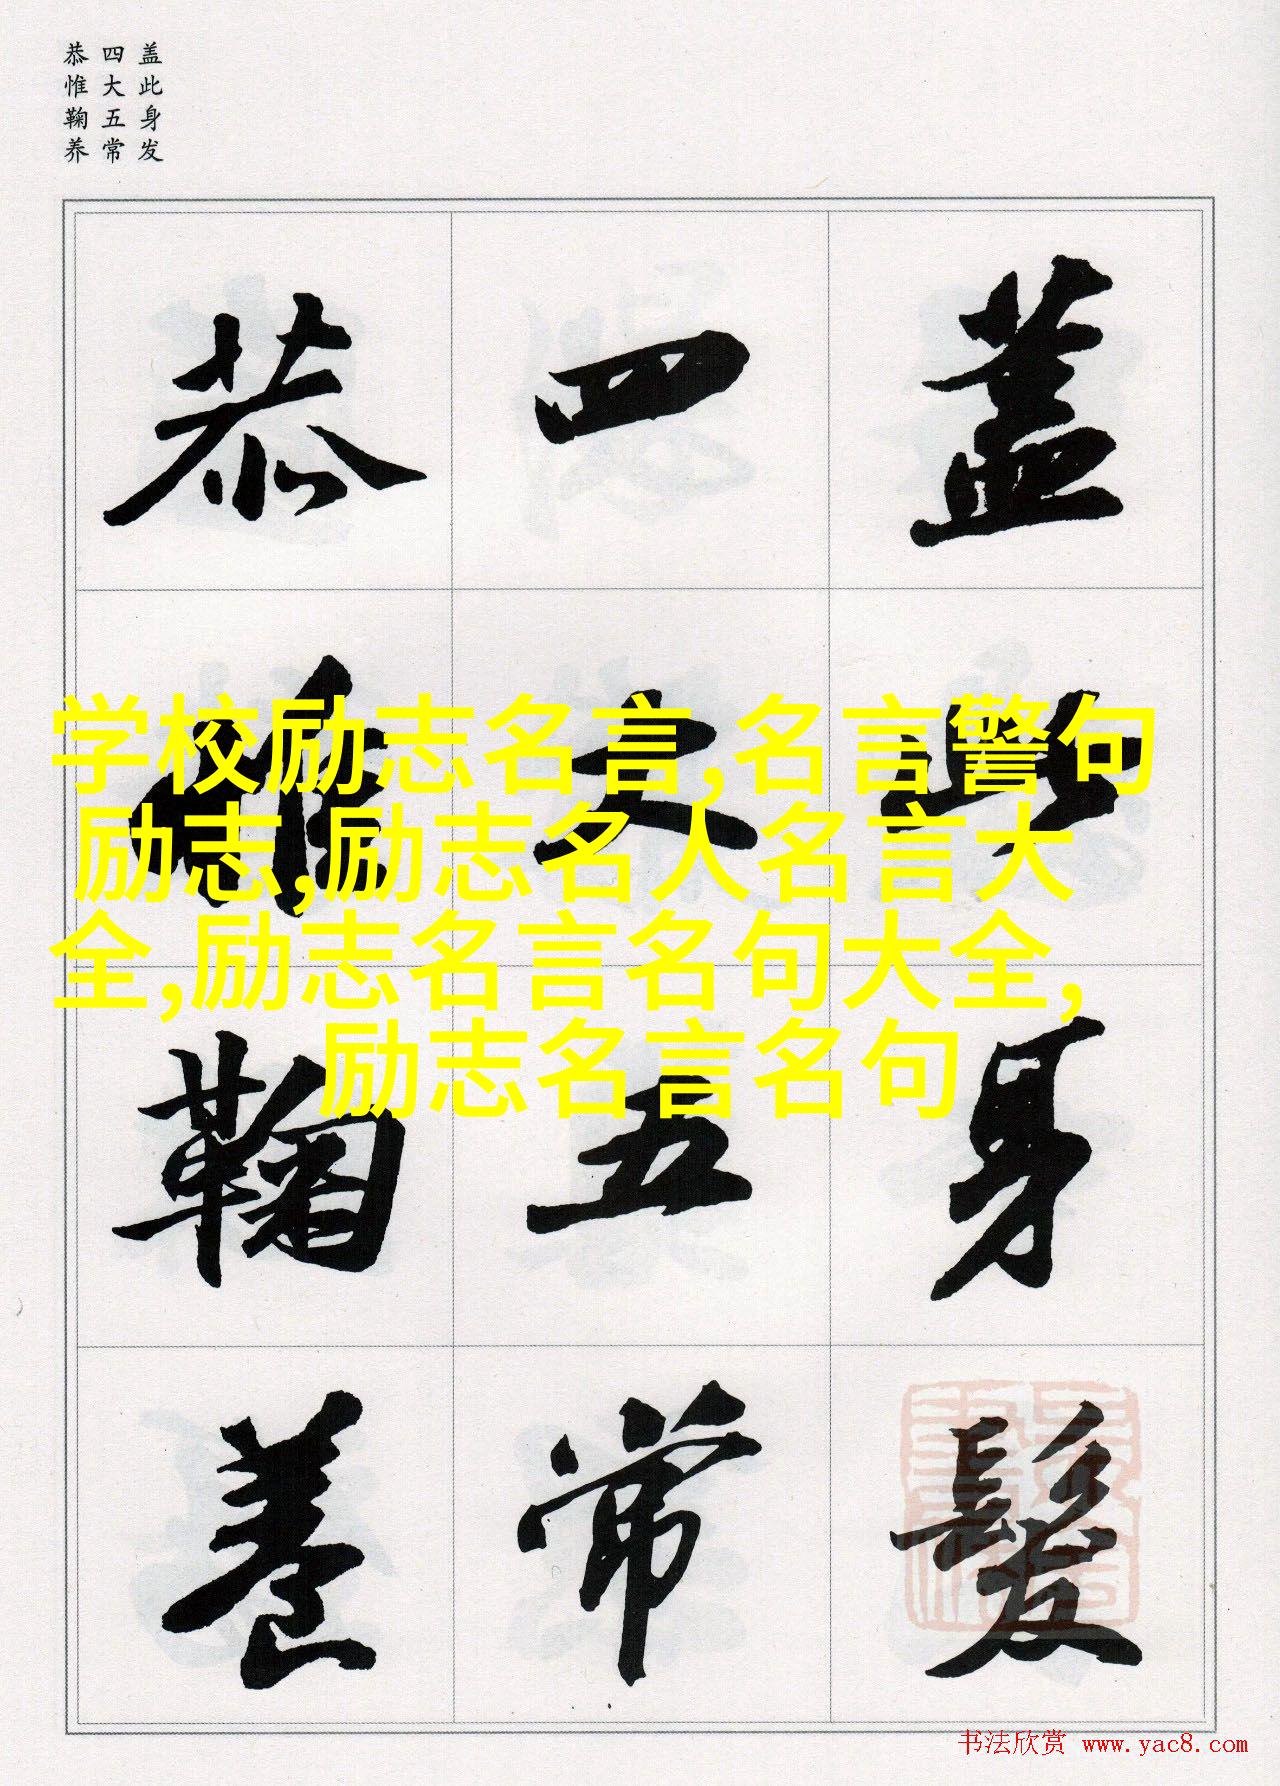 盖此身发
四大五常
恭惟鞠养
蓋此身髮
四大五常
恭惟鞠養
学校励志名言,名言警句
励志,励志名人名言大
全,励志名言名句大全,
励志名言名句
书法欣赏 www.yac8.com